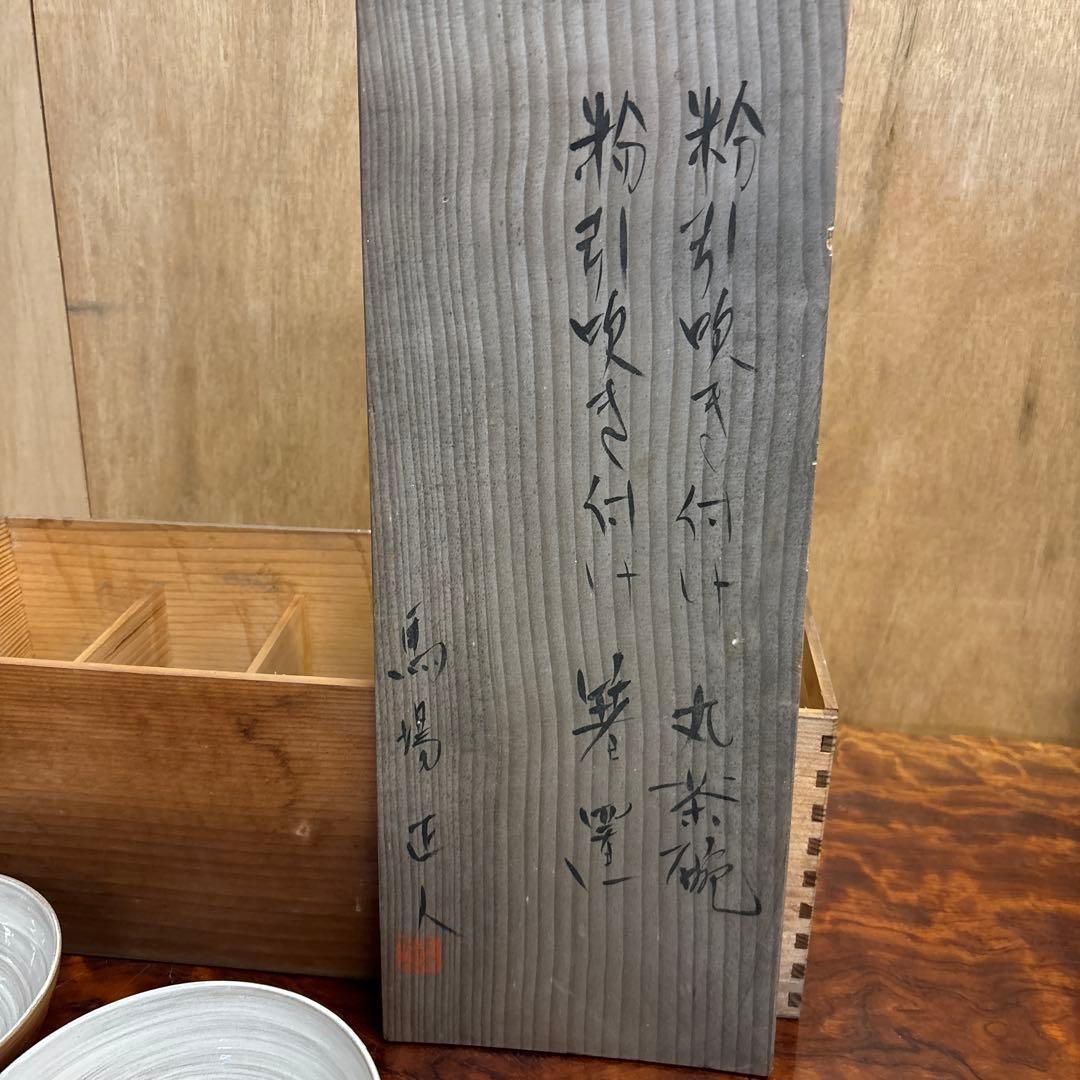 粉引吹き付け 丸茶碗
粉引吹き付け 箸置
馬場正人